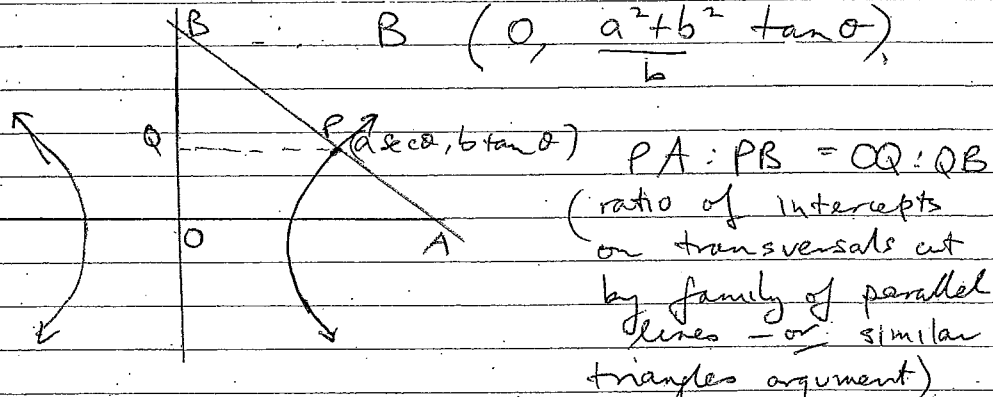 B
∴ B (0, a²+b²/b tanθ),
P
Q
(a secθ, b tanθ)
PA : PB = OQ : QB
O
A
(ratio of intercepts
on transversals cut
by family of parallel
lines – or similar
triangles argument)